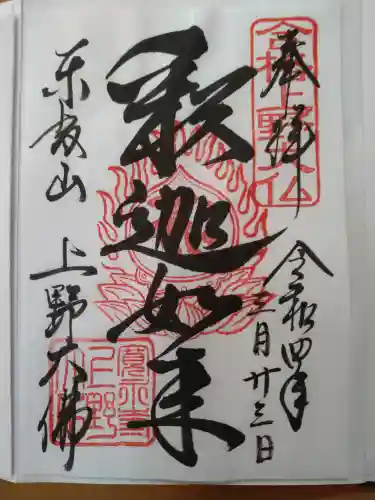 奉拝
令和四年
三月廿三日
釈迦如来
東叡山 上野大佛